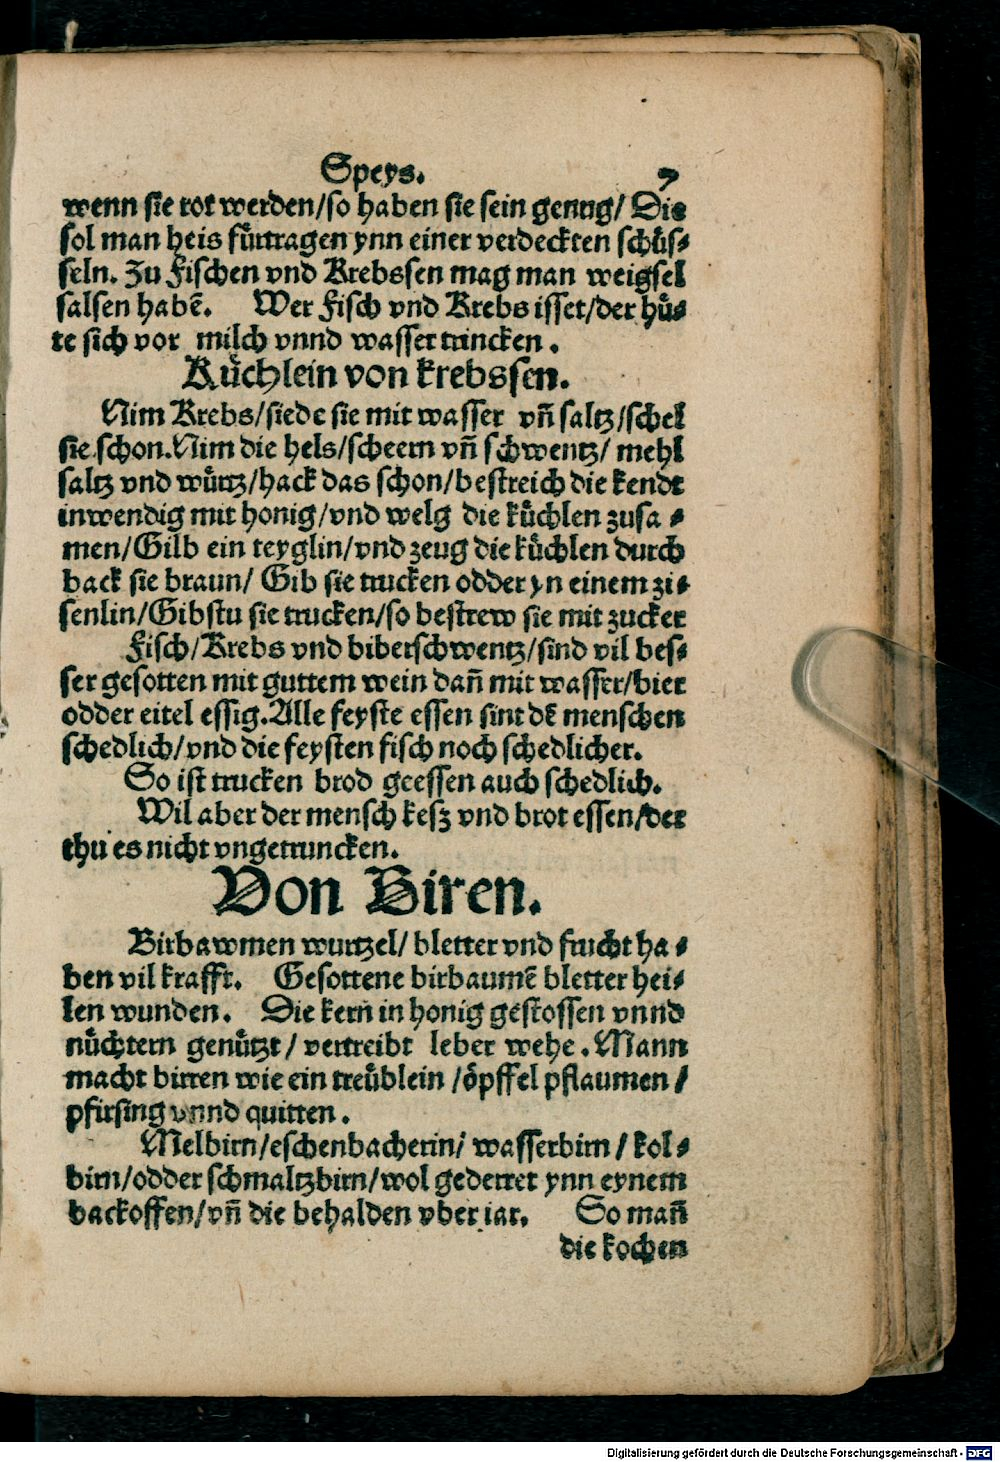 Speys. 7
wenn sie rot werden/so haben sie sein genug/ Die
sol man heis fürtragen ynn einer verdeckten schüs-
seln. Zu Fischen vnd Krebssen mag man weigsel
salsen habē. Wer Fisch vnd Krebs isset/der hü-
te sich vor milch vnnd wasser trincken.
Küchlein von krebssen.
Nim Krebs/siede sie mit wasser vñ saltz/schel
sie schon. Nim die hels/scheern vñ schwentz/ mehl
saltz vnd würtz/hack das schon/bestreich die hendt
inwendig mit honig/vnd welg die küchlen zusa-
men/Gilb ein teyglin/vnd zeug die küchlen durch
back sie braun/ Gib sie trucken odder yn einem zi-
senlin/Gibstu sie trucken/so bestrew sie mit zucker
Fisch/Krebs vnd biberschwentz/sind vil bes-
ser gesotten mit guttem wein dañ mit wasser/bier
odder eitel essig. Alle feyste essen sint dē menschen
schedlich/vnd die feysten fisch noch schedlicher.
So ist trucken brod geessen auch schedlich.
Wil aber der mensch kesz vnd brot essen/der
thu es nicht vngetruncken.
Von Biren.
Birbawmen wurtzel/ bletter vnd frucht ha-
ben vil krafft. Gesottene birbaumē bletter hei-
len wunden. Die kern in honig gestossen vnnd
nüchtern genützt/ vertreibt leber wehe. Mann
macht birren wie ein treüblein /öpffel pflaumen/
pfirsing vnnd quitten.
Melbirn/eschenbacherin/ wasserbirn / kol-
birn/odder schmaltzbirn/wol gederret ynn eynem
backoffen/vñ die behalden vber iar. So mañ
die kochen
Digitalisierung gefördert durch die Deutsche Forschungsgemeinschaft - DFG